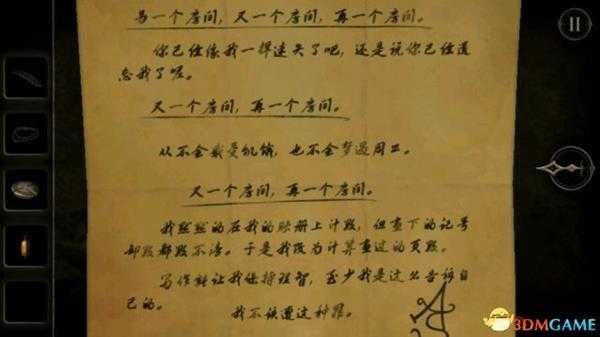 另一个房间，又一个房间，再一个房间。
你已经像我一样迷失了吧，还是说你已经遗
忘我了呢。
又一个房间，再一个房间。
从不会感受饥饿，也不会梦遇周工。
又一个房间，再一个房间。
我默默的在我的账册上计数，但查下的记号
都数都数不清。于是我改为计算查过的页数。
写作能让我保持理智，至少我是这么告诉自
己的。
我不该遭这种罪。
3DMGAME